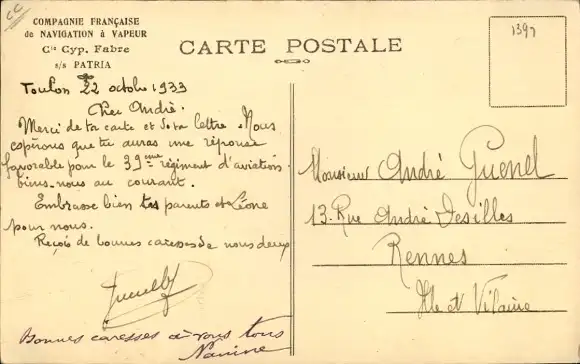 COMPAGNIE FRANÇAISE
de NAVIGATION à VAPEUR
Cie Cyp. Fabre
s/s PATRIA
CARTE POSTALE
1397
Toulon 22 octobre 1933
Cher André.
Merci de ta carte et de ta lettre. Nous
espérons que tu auras une réponse
favorable pour le 39ème régiment d'aviation.
tiens-nous au courant.
Embrasse bien tes parents et Léone
pour nous.
Reçois de bonnes caresses de nous deux
Bonnes caresses à vous tous
Monsieur André Guenel
13. Rue André Desilles
Rennes
Ille et Vilaine